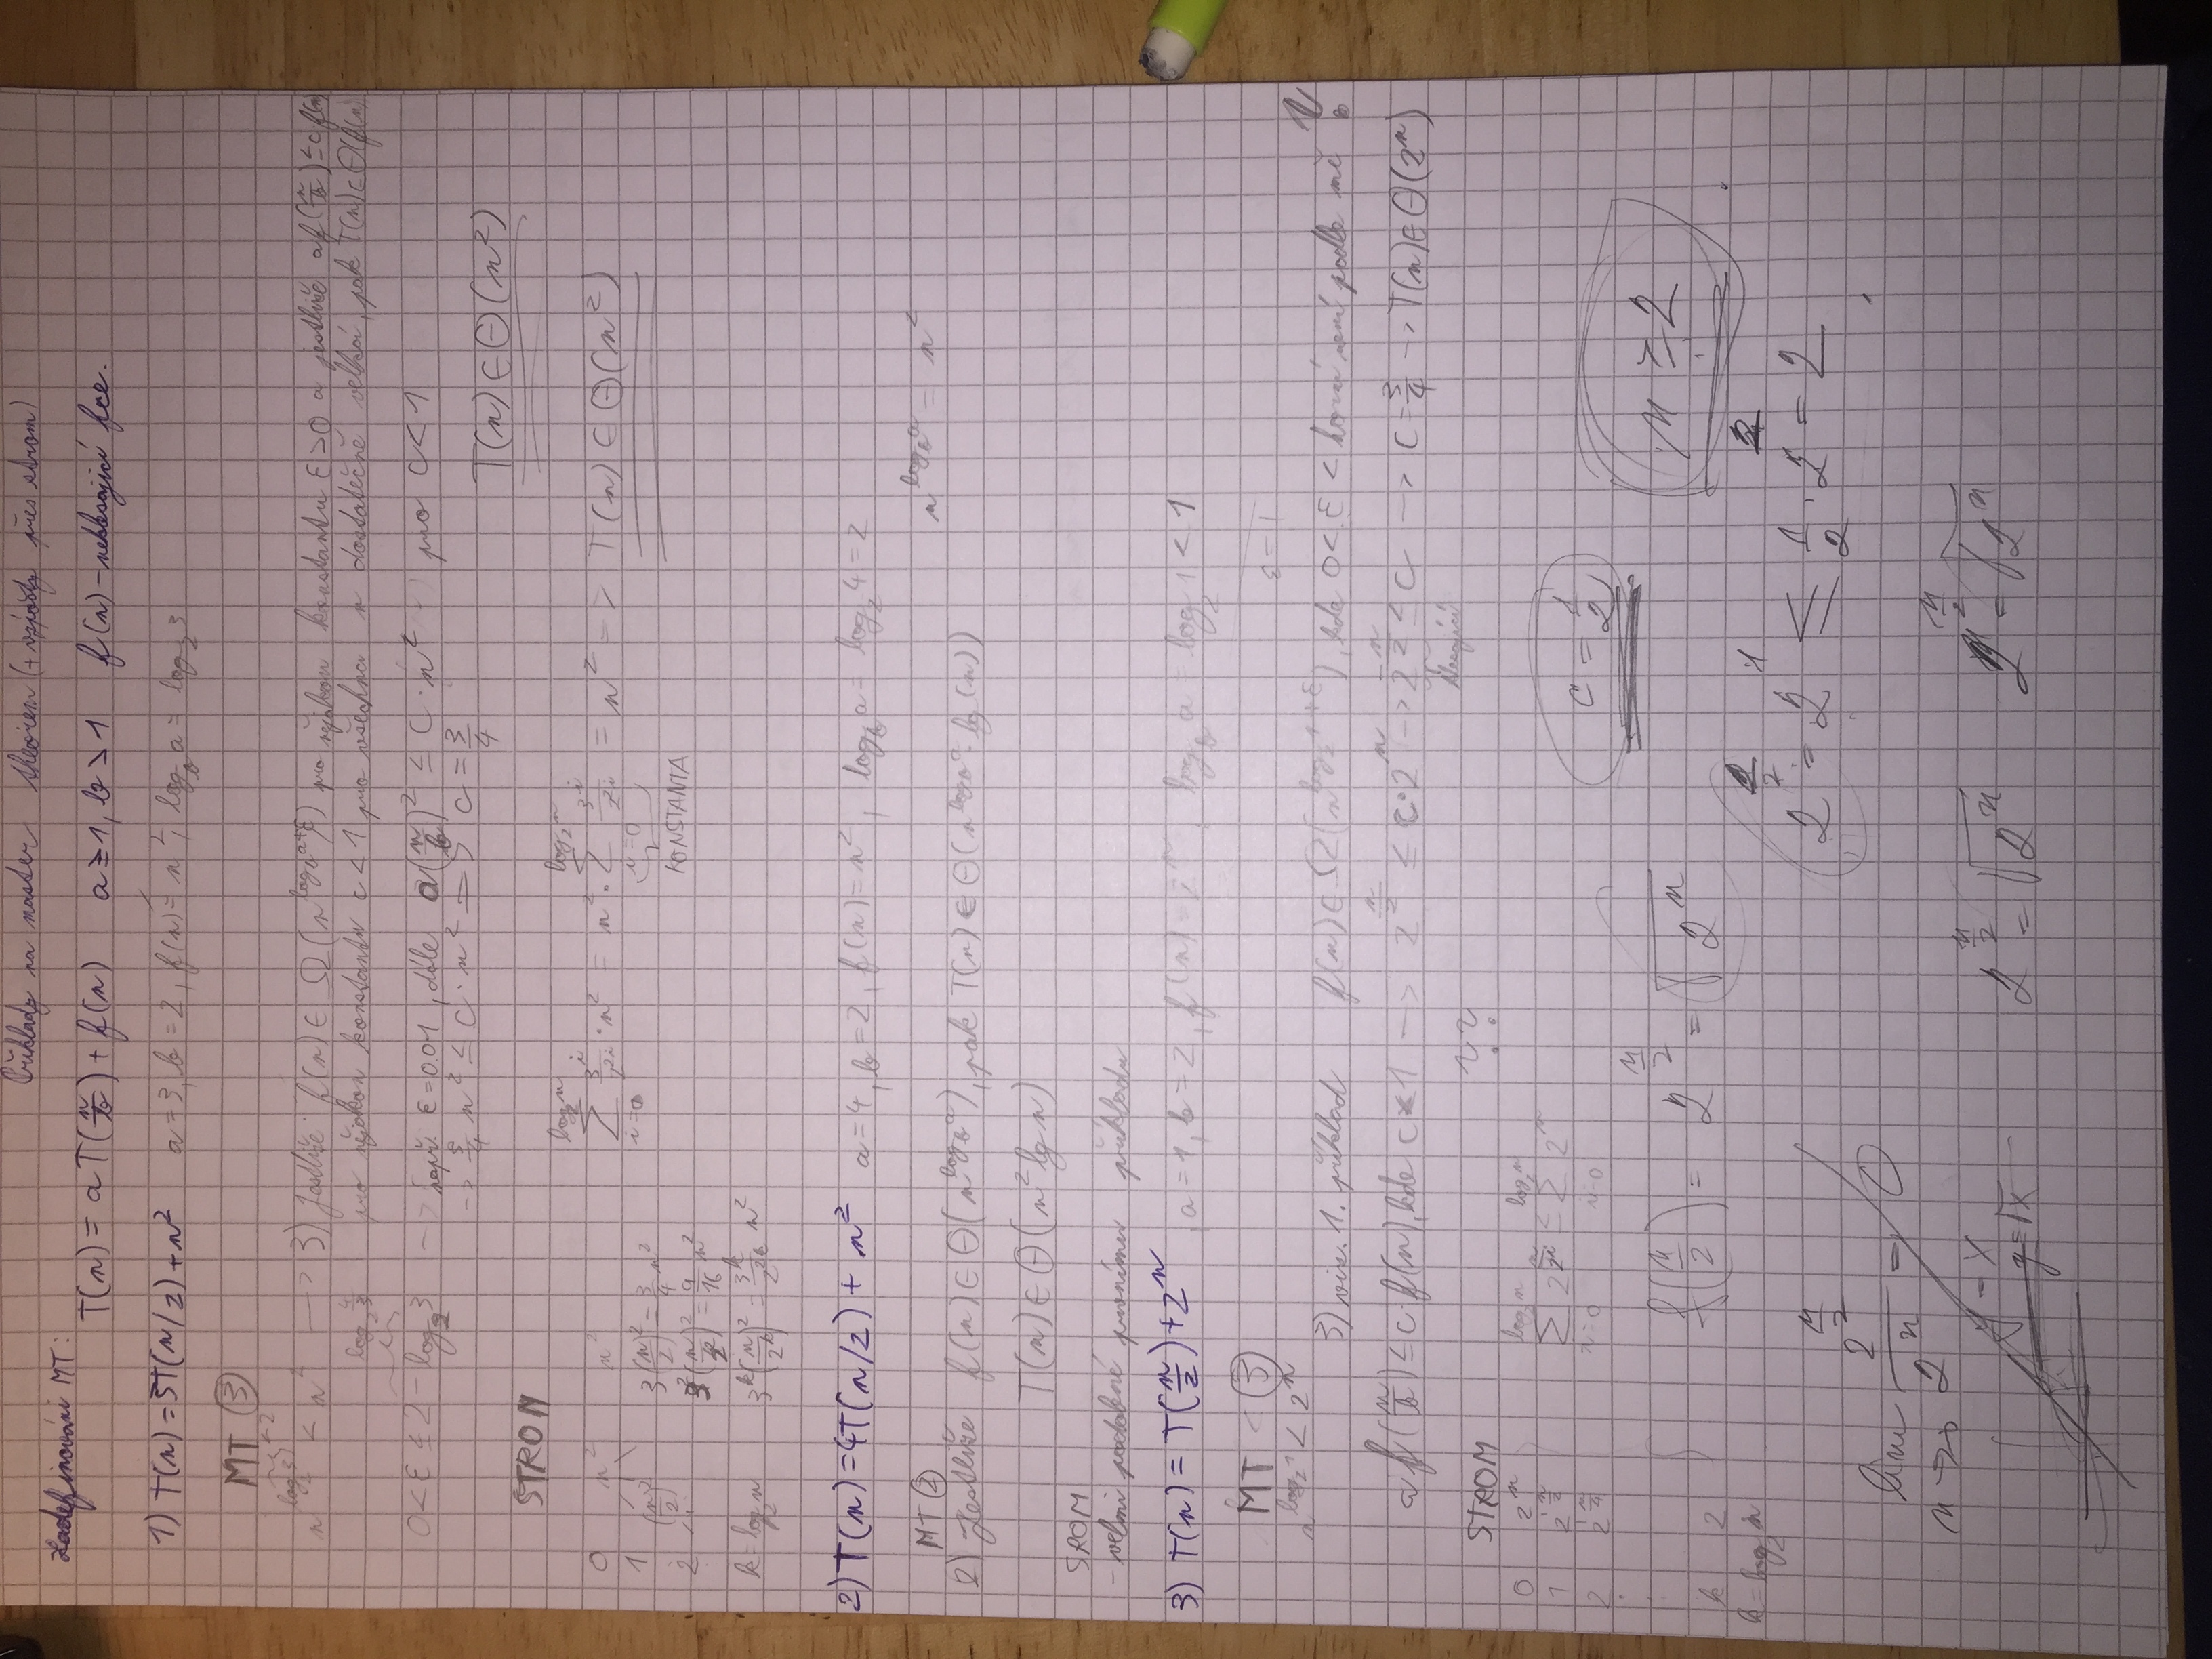 Příklady na master theorem (+ výpočty přes strom)
Zadefinování MT:
T(n) = a T(n/b) + f(n) a ≥ 1, b > 1 f(n) - neklesající fce.
1) T(n) = 3T(n/2) + n² a = 3, b = 2, f(n) = n², log_b a = log_2 3
MT ③
< 2
n^(log_2 3) < n² → 3) Jestliže f(n) ∈ Ω(n^(log_b a+ε)) pro nějakou konstantu ε > 0 a jestliže a f(n/b) ≤ c f(n)
pro nějakou konstantu c < 1 pro všechna n dostatečně velká, pak T(n) ∈ Θ(f(n))
log_2 4/3
0 < ε ≤ 2 - log_2 3 → např. ε = 0.01, dále a(n/b)² ≤ c · n² pro c < 1
→ 3/4 n² ≤ c · n² => c = 3/4
T(n) ∈ Θ(n²)
STROM
0 n² n²
1 (n/2)² 3(n/2)² = 3/4 n²
2 3²(n/4)² = 9/16 n²
k = log_2 n 3^k(n/2^k)² = 3^k/2^2k n²
∑_{i=0}^{log_2 n} 3^i/2^2i · n² = n² · ∑_{i=0}^{log_2 n} 3^i/2^2i = n² => T(n) ∈ Θ(n²)
KONSTANTA
2) T(n) = 4T(n/2) + n² a = 4, b = 2, f(n) = n², log_b a = log_2 4 = 2
MT ② n^(log_b a) = n²
2) Jestliže f(n) ∈ Θ(n^(log_b a)), pak T(n) ∈ Θ(n^(log_b a) · lg(n))
T(n) ∈ Θ(n² lg n)
SROM
- velmi podobné prvnímu příkladu
3) T(n) = T(n/2) + 2^n, a = 1, b = 2, f(n) = 2^n, log_b a = log_2 1 < 1
MT < ③
ε = 1
n^(log_2 1) < 2^n
3) viz. 1. příklad f(n) ∈ Ω(n^(log_2 1+ε)), kde 0 < ε < horní není podle mě ?
a f(n/b) ≤ c f(n), kde c < 1 → 2^(n/2) ≤ c · 2^n → 2^(-n/2) ≤ c → c = 3/4 → T(n) ∈ Θ(2^n)
klesající
??
STROM
0 2^n
1 2^(n/2)
2 2^(n/4)
k 2
k = log_2 n
∑_{i=0}^{log_2 n} 2^(n/2^i) ≤ ∑_{i=0}^{log_2 n} 2^n
c = 1/2
n ≥ 2
f(n/2) = 2^(n/2) = √2^n
2^(2/2) = 2^1 ≤ 1/2 · 2^2 = 2
lim n→∞ 2^(n/2)/2^n = 0
y = x
y = √x
2^(n/2) = √2^n 2^(n/2) = √2^n